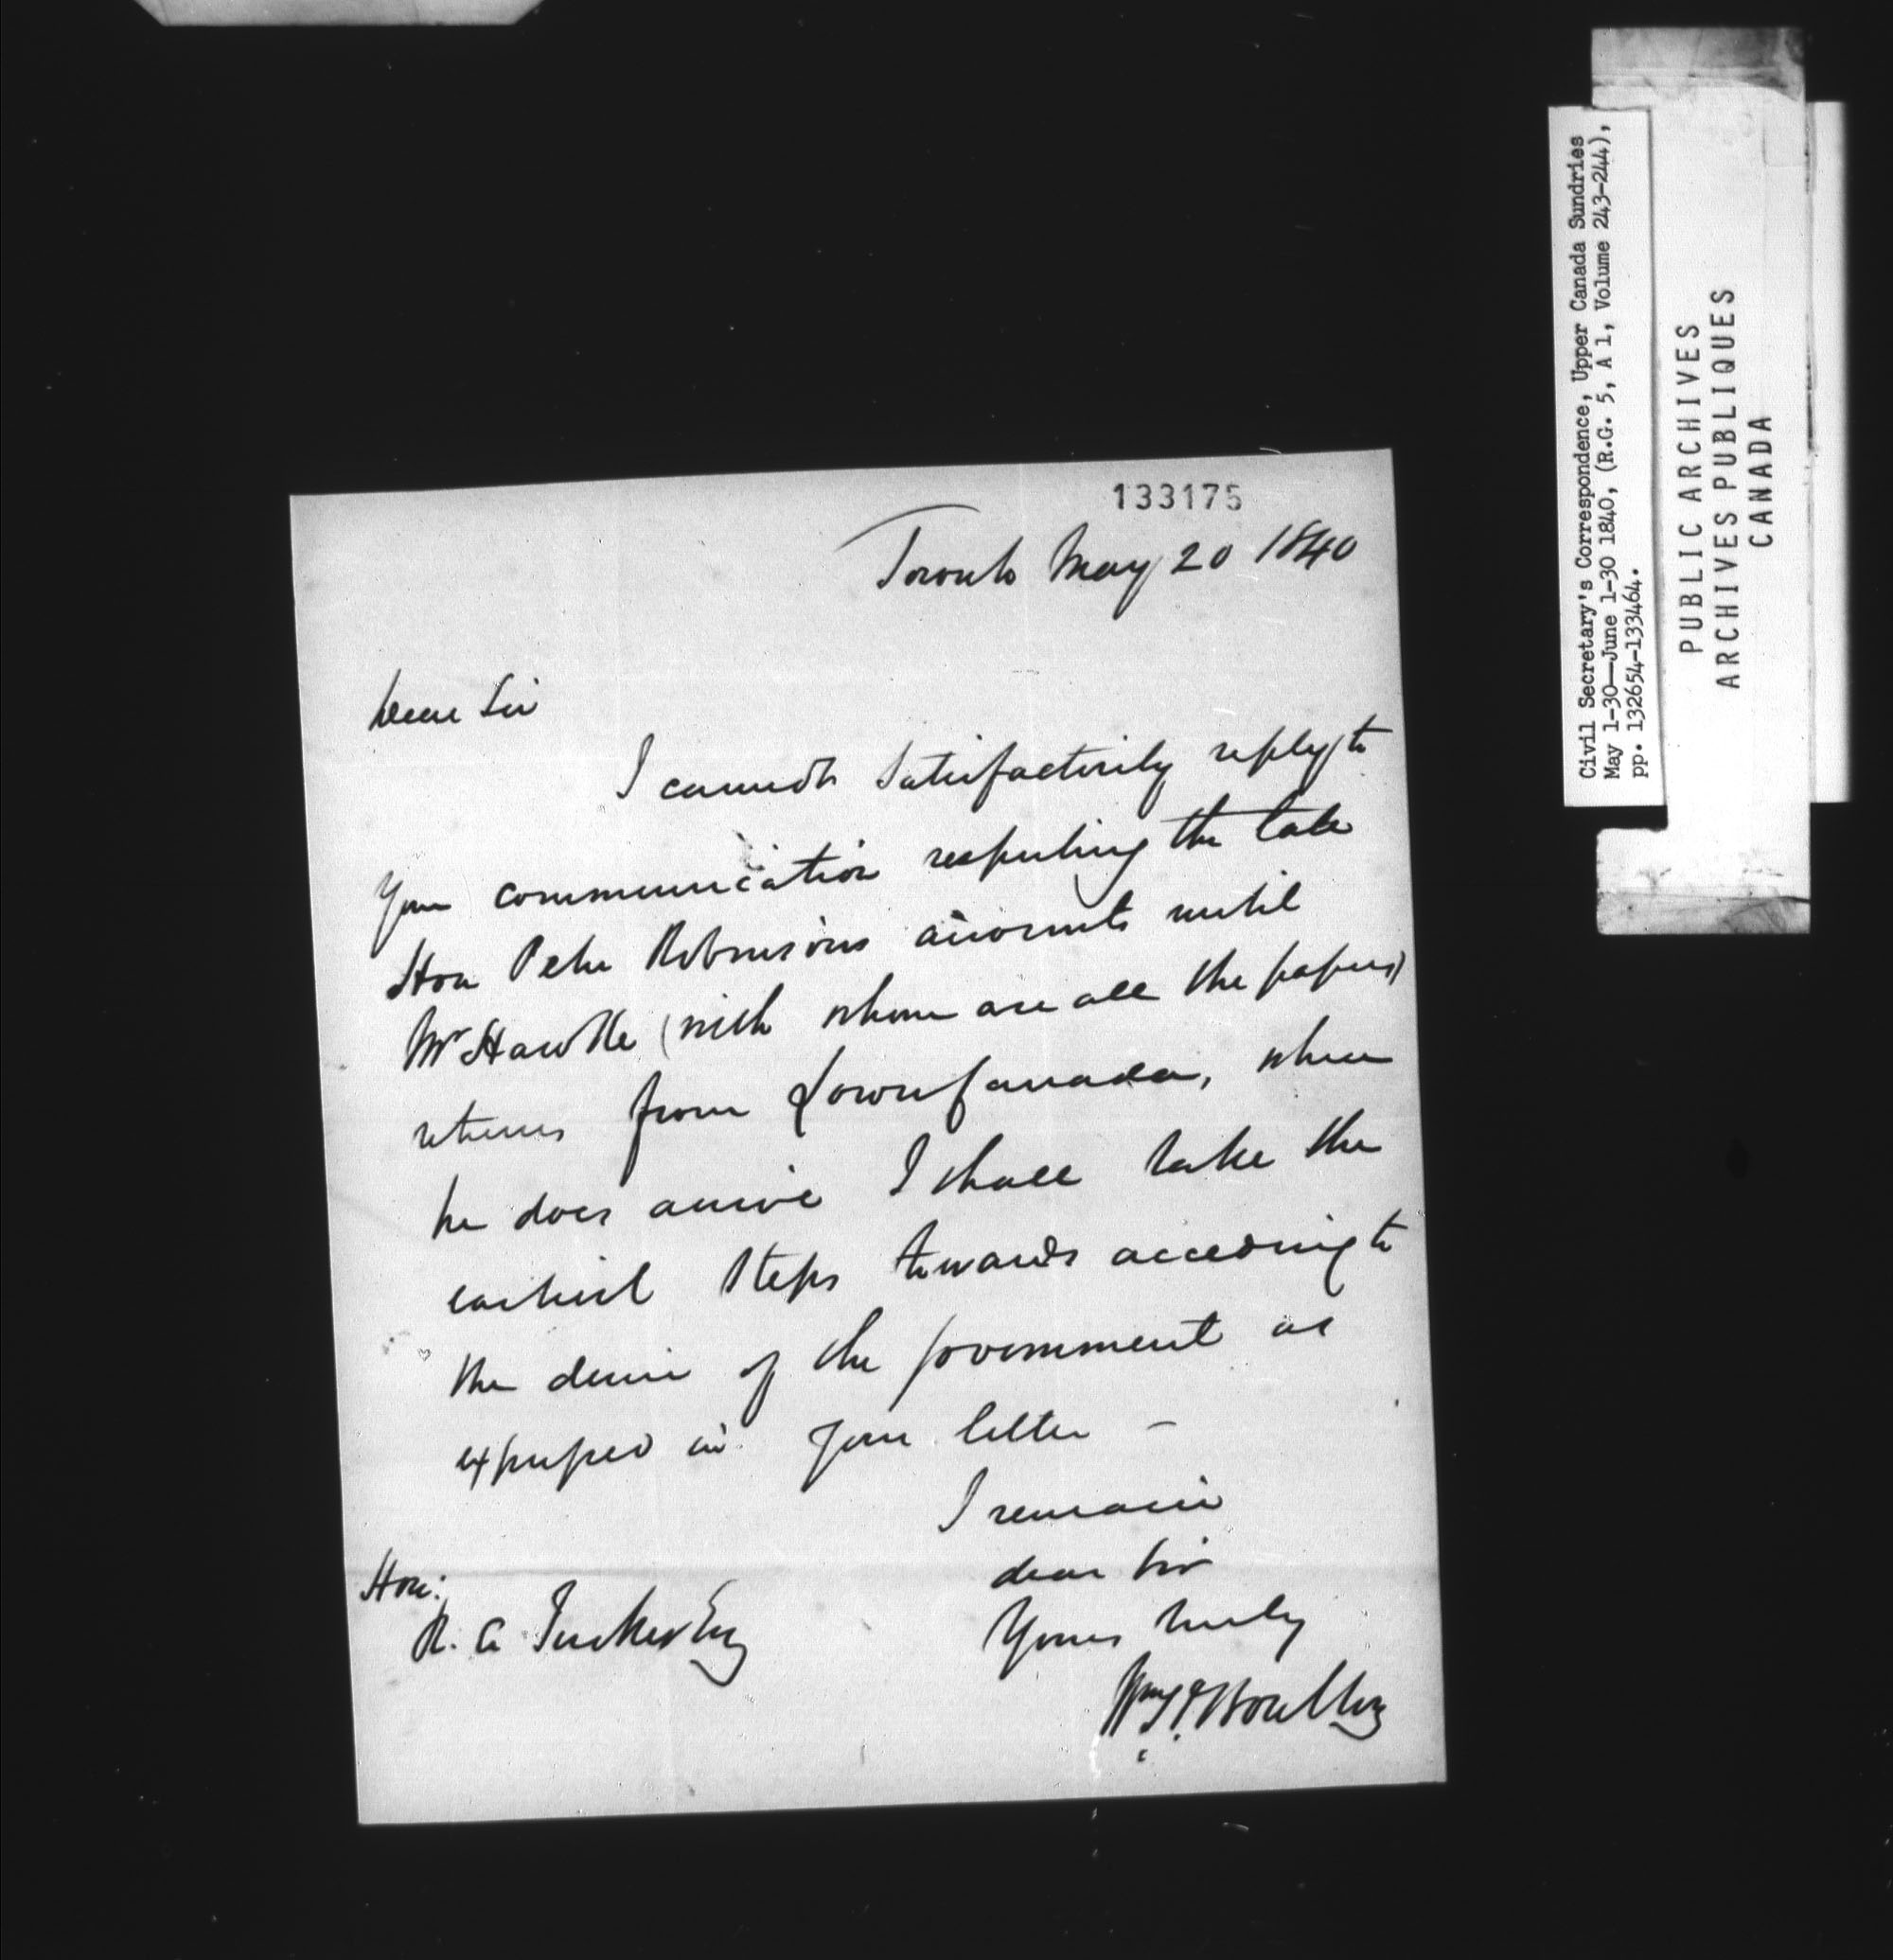 133175
Toronto May 20 1840
Dear Sir
I cannot Satisfactorily reply to
Your communication respecting the late
Hon Peter Robinsons accounts until
Mr Hawke (with whom are all the papers)
returns from Lower Canada, when
he does arrive I shall take the
earliest Steps towards acceding to
the desire of the Government as
expressed in your letter -
I remain
dear Sir
Yours truly
Wm Boulton
Hon:
R. A Tucker Esq
Civil Secretary's Correspondence, Upper Canada Sundries
May 1-30—June 1-30 1840, (R.G. 5, A 1, Volume 243-244),
pp. 132654-133464.
PUBLIC ARCHIVES
ARCHIVES PUBLIQUES
CANADA